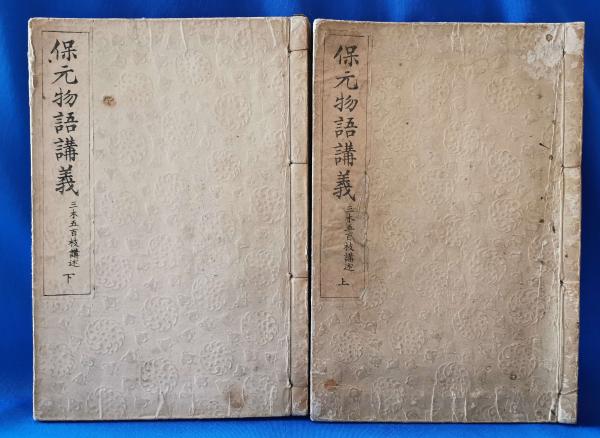 保元物語講義
三木五百枝講述
上
保元物語講義
三木五百枝講述
下